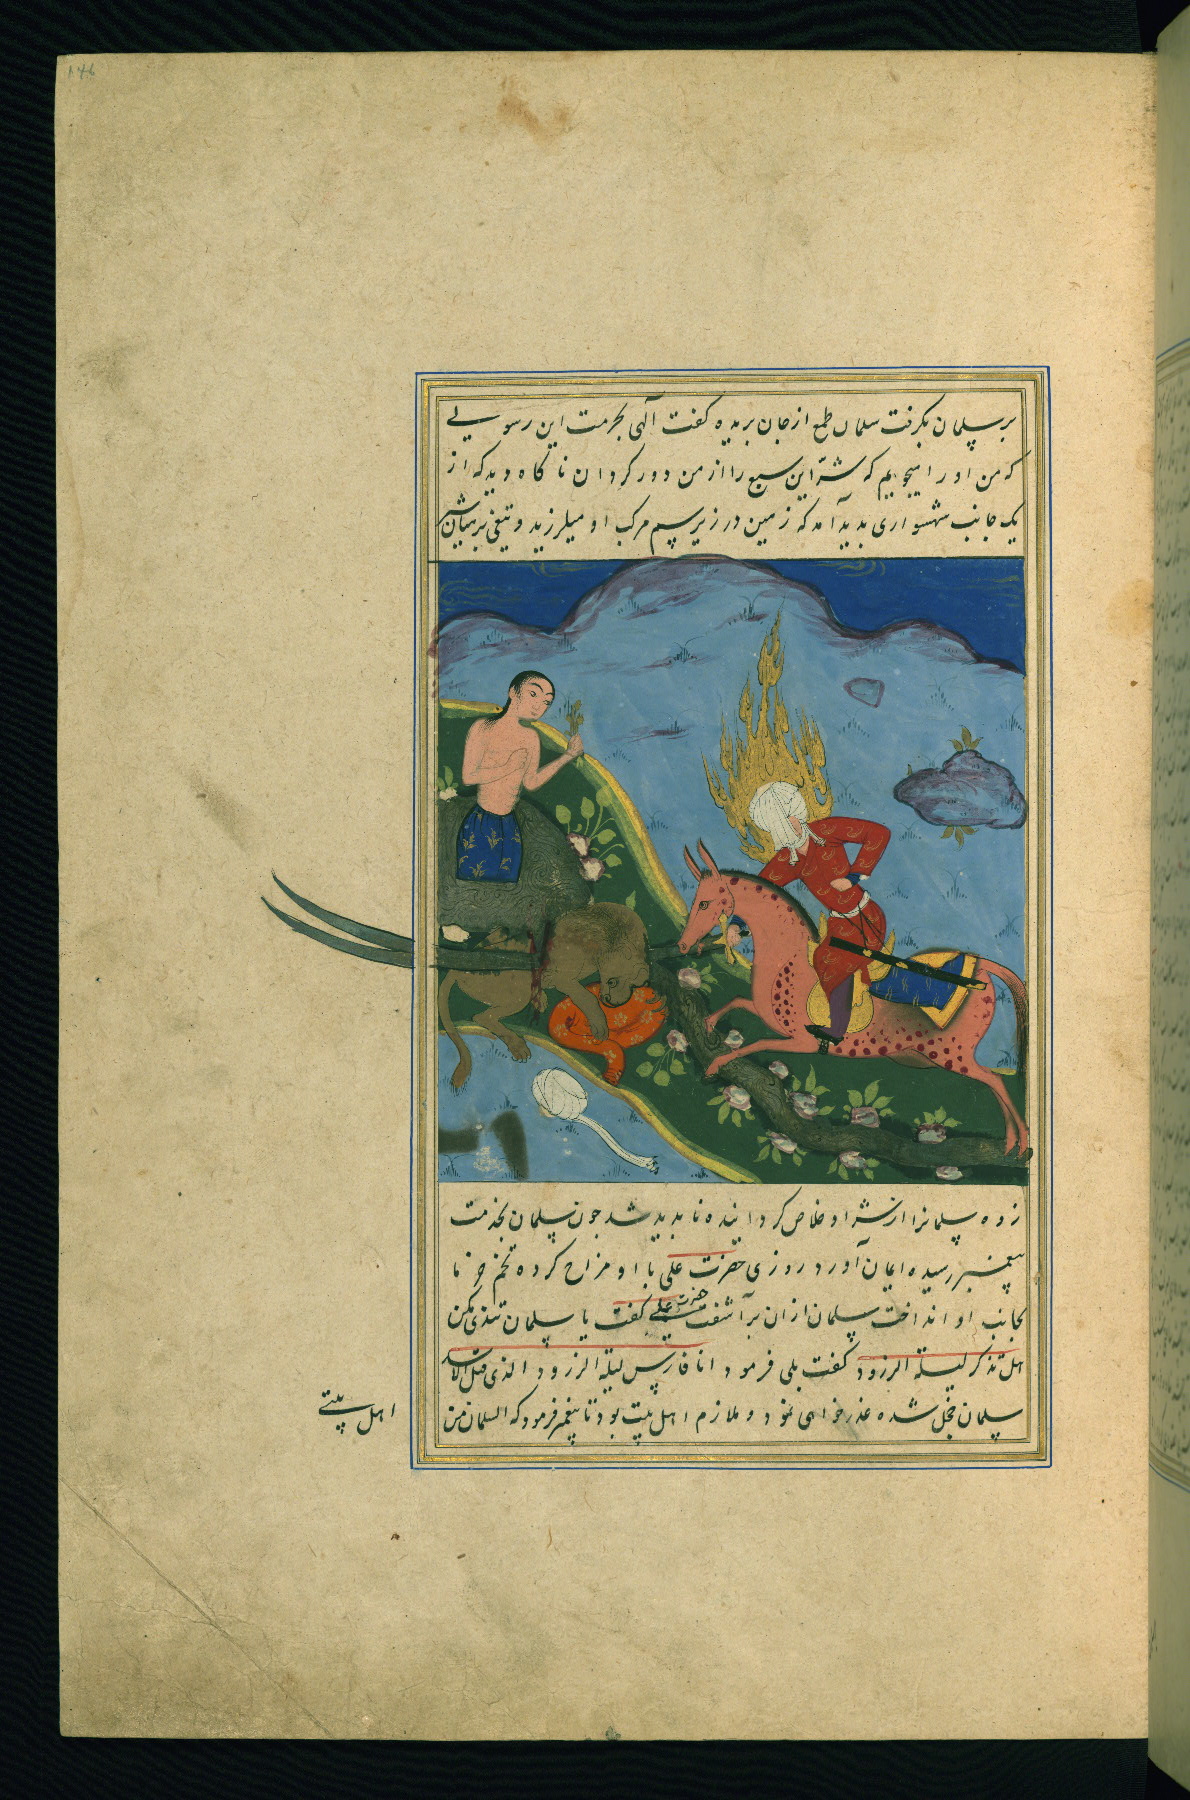 بر سلمان بگرفت سلمان طمع از جان بریده گفت الهی بحرمت این رسولی
که من او را میجویم که شرّ این سبع را از من دور گردان ناگاه دید که از
یک جانب شهسواری پدید آمد که زمین در زیر سم مرکب او میلرزید و تیغی بر میان شیر
زده سلمانرا از شر او خلاص گردانیده ناپدید شد چون سلمان بخدمت
پیغمبر رسیده ایمان آورد روزی حضرت علی با او مزاح کرده تخم خرما
بجانب او انداخت سلمان ازان بر آشفت حضرت علی گفت یا سلمان تندی مکن
هل تذکر لیلة الرزود گفت بلی فرمود انا فارس لیلة الرزود الذی قتل الاسد
سلمان خجل شده عذرخواهی نمود و ملازم اهل بیت بود تا پیغمبر فرمود که السلمان من
اهل بیتی